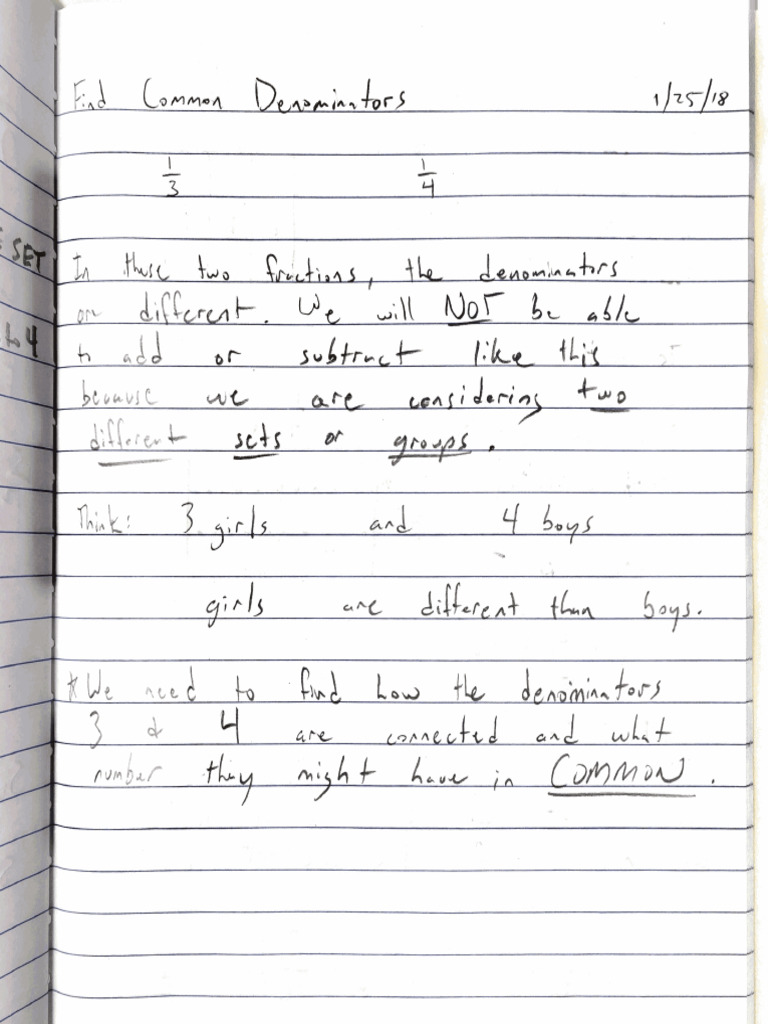 Find Common Denominators 1/25/18
1/3 1/4
E SET
In these two fractions, the denominators
are different. We will NOT be able
to 4
to add or subtract like this
because we are considering two
different sets or groups.
Think: 3 girls and 4 boys
girls are different than boys.
*We need to find how the denominators
3 & 4 are connected and what
number they might have in COMMON.